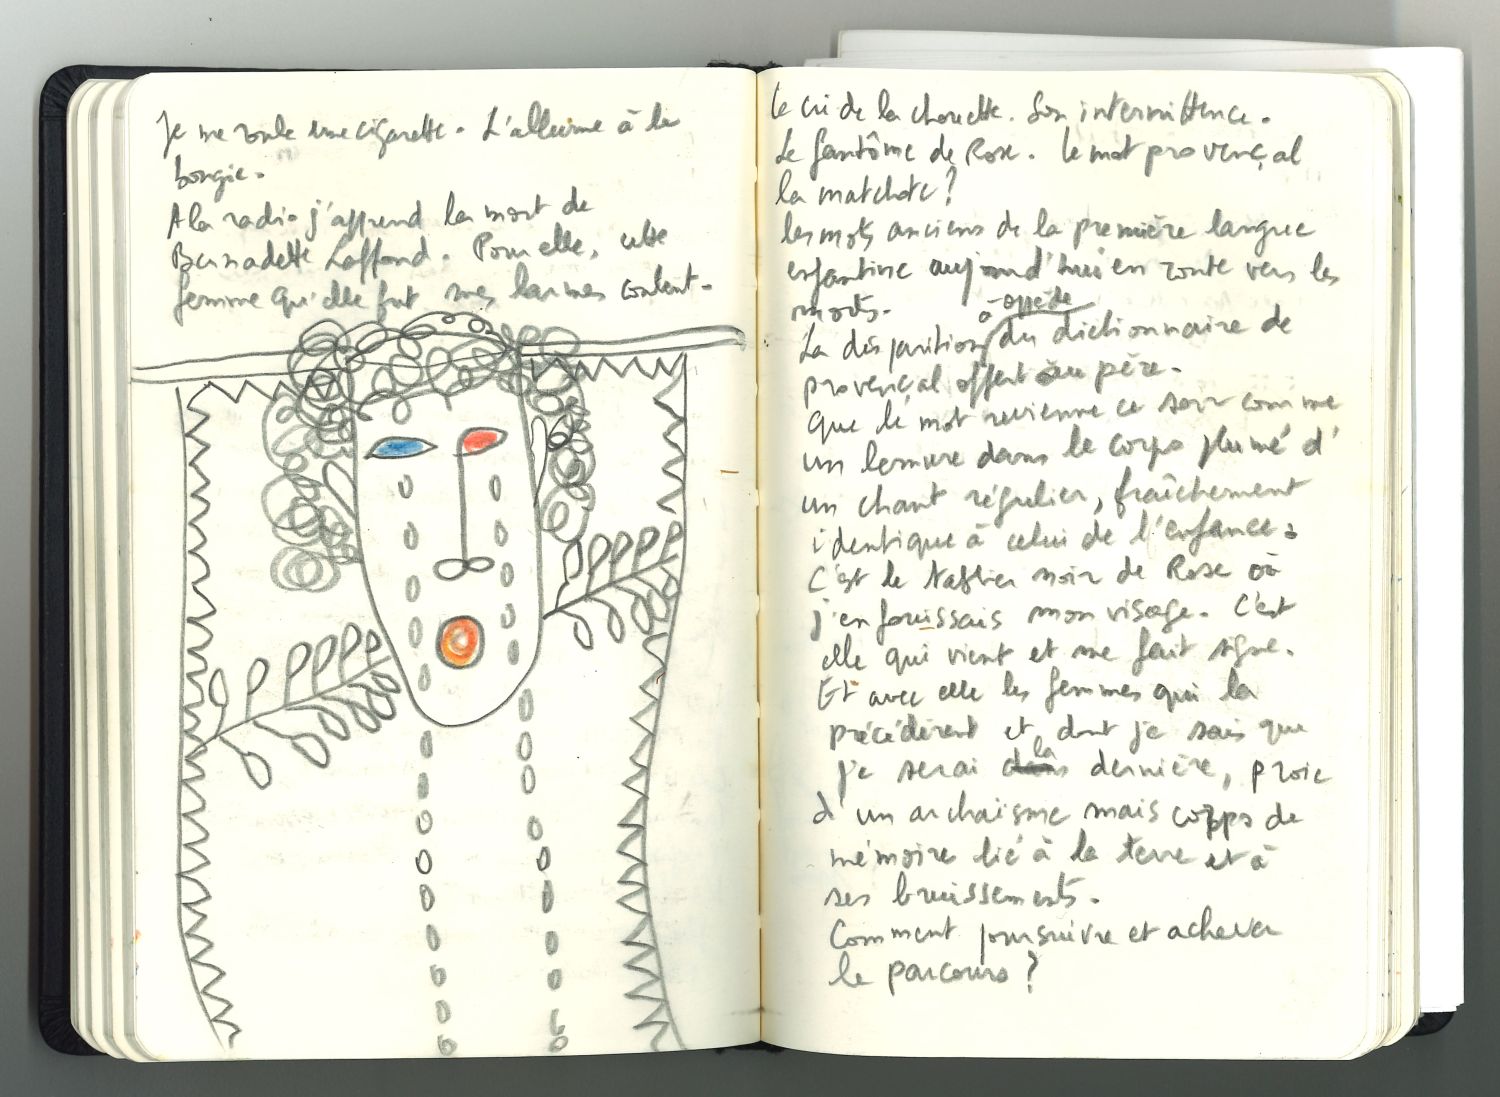 Je me roule une cigarette. L'allume à la
bougie.
A la radio j'apprend la mort de
Bernadette Laffond. Pour elle, cette
femme qu'elle fut mes larmes coulent.
Le cri de la chouette. Son intermittence.
Le fantôme de Rose. Le mot provençal
la matchote?
les mots anciens de la première langue
enfantine aujourd'hui en route vers les
morts.
à oppède
La disparition du dictionnaire de
provençal offert au père.
Que le mot revienne ce soir comme
un lemure dans le corps plumé d'
un chant régulier, fraîchement
identique à celui de l'enfance :
C'est le tablier noir de Rose où
j'enfouissais mon visage. C'est
elle qui vient et me fait signe.
Et avec elle les femmes qui la
précédèrent et dont je sais que
je serai la dernière, proie
d'un archaïsme mais corps de
mémoire lié à la terre et à
ses bruissements.
Comment poursuivre et achever
le parcours ?